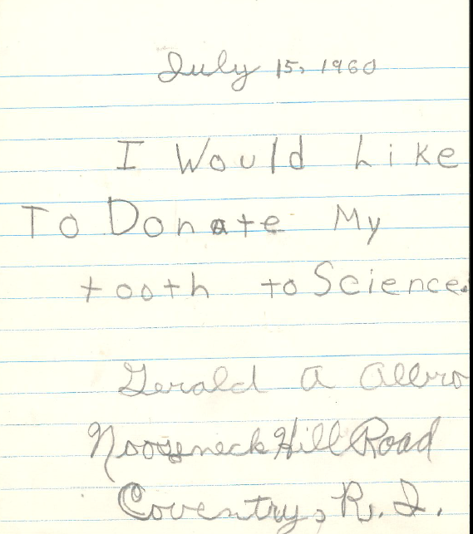 July 15, 1960
I Would Like
To Donate My
tooth to Science.
Gerald A Allbro
Nooseneck Hill Road
Coventry, R. I.